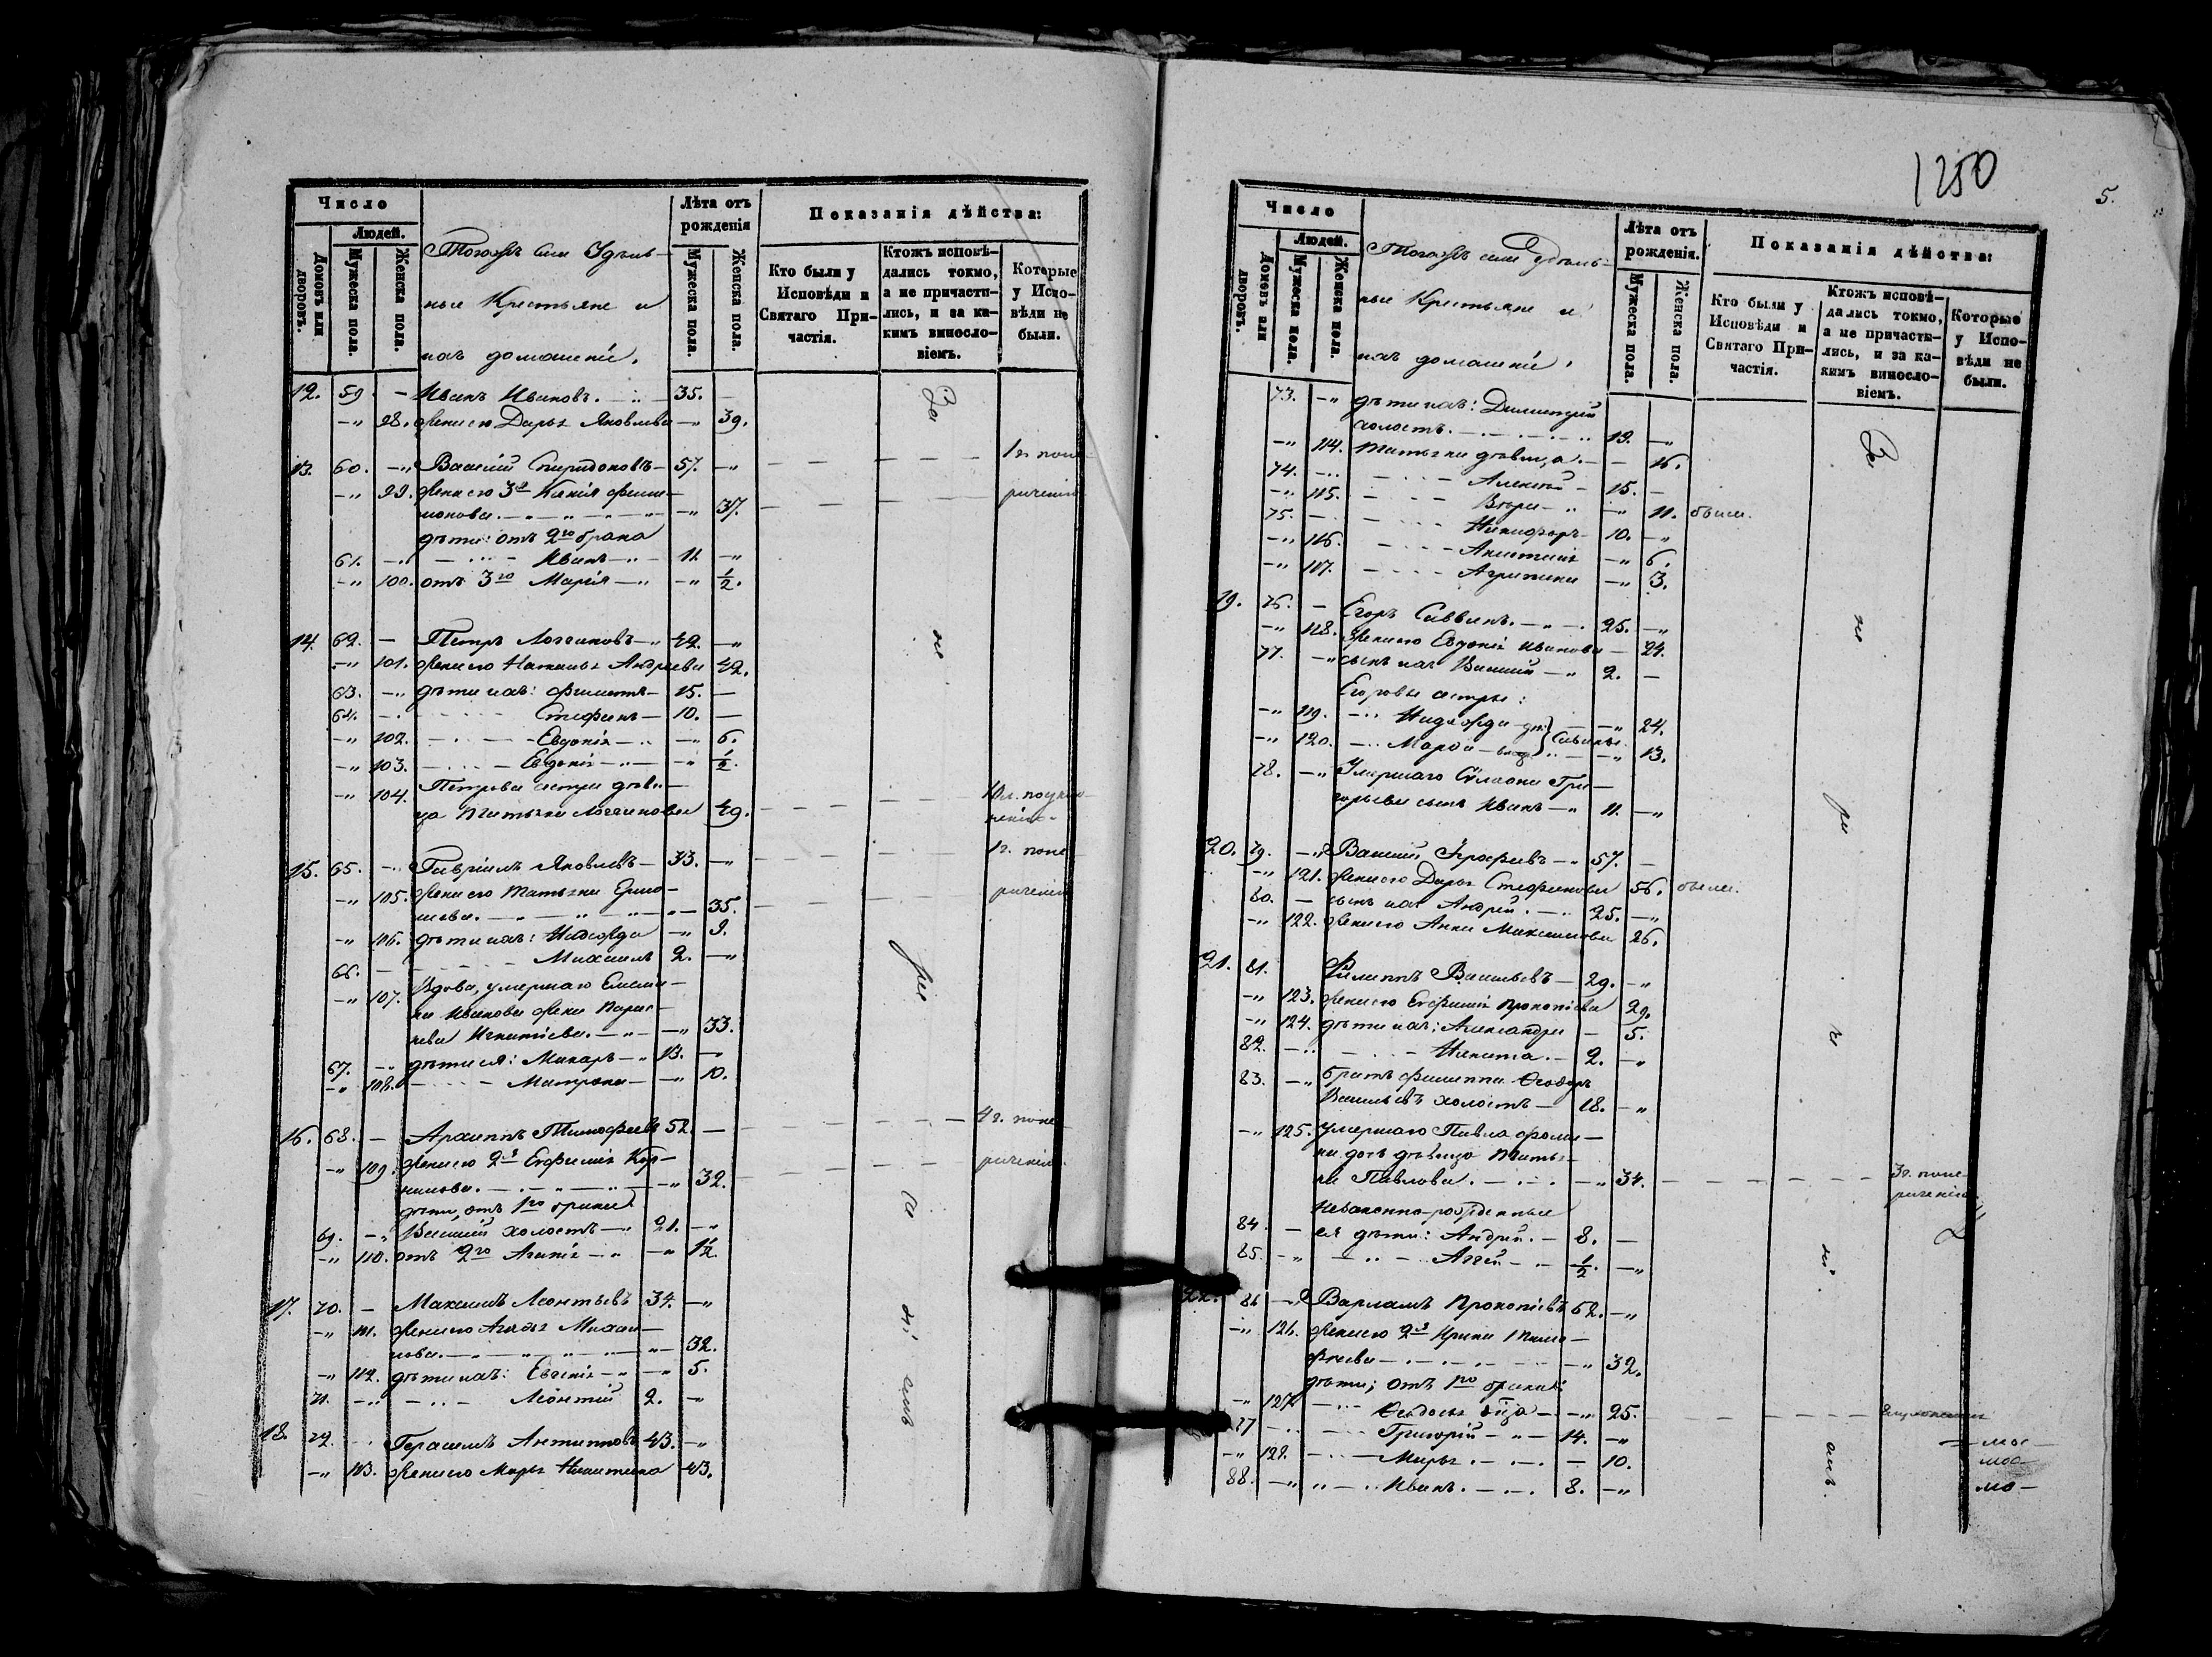 Число
Людей.
Домовъ или дворовъ.
Мужеска пола.
Женска пола.
Тогожъ села Удѣль-
ные Крестьяне и
ихъ домашніе.
Лѣта отъ рожденія
Мужеска пола.
Женска пола.
Показанія дѣйства:
Кто были у Исповѣди и Святаго При-частія.
Ктожъ исповѣ-дались токмо, а не причасти-лись, и за ка-кимъ винословіемъ.
Которые у Испо-вѣди не были.
12. 59. — Иванъ Ивановъ. 35. —
—„ 98. жена его Дарья Яковлева —„ 39.
13. 60. —„ Василій Спиридоновъ — 57. —„ 1 г. попе-
—„ 99. жена его 3я Ксенія Фили- речению
монова. —„ 37.
дѣти: отъ 2го брака
61. —„ Иванъ —„ 11. —„
—„ 100. отъ 3го Марія —„ —„ ½.
14. 62. — Петръ Логгиновъ —„ 42. —„
—„ 101. жена его Наталья Андреева 42.
63. —„ дѣти ихъ: Филиппъ — 15. —
64. —„ Стефанъ — 10. —
—„ 102. Евдокія —„ 6.
—„ 103. Евдокія —„ ½.
—„ 104. Петрова сестра дѣви-
ца Татьяна Логгинова 49. 10 л.
15. 65. —„ Гавріилъ Яковлевъ — 33. —„ 1 г. попе-
—„ 105. жена его Татьяна Ермо- речению
лаева. 35.
—„ 106. дѣти ихъ: Надежда —„ 9.
66. — Михаилъ 2. —„
—„ 107. Вдова, умершаго
Иванова жена Парас-
кева Игнатіева. —„ 33.
67. —„ дѣти ея: Макаръ —„ 13. —
—„ 108. Матрона —„ 10.
16. 68. — Архиппъ Тимофеевъ 52. — 4 г. попе-
—„ 109. жена его 2я Евфимія Кор- речению.
нилова. —„ 32.
дѣти, отъ 1го брака
69. —„ Василій холостъ —„ 21. —„
—„ 110. отъ 2го Агапія —„ —„ 1½.
17. 70. — Максимъ Леонтьевъ 34. —„
—„ 111. жена его Агафья Михаи-
лова. —„ 32.
—„ 112. дѣти ихъ: Евгенія —„ 5.
71. —„ Леонтій 2. —„
18. 72. Герасимъ Антиповъ 43. —„
—„ 113. жена его Марья Никитина 43.
За
не
ра
1250
5.
Число
Людей.
Домовъ или дворовъ.
Мужеска пола.
Женска пола.
Тогожъ села Удѣль-
ные Крестьяне и
ихъ домашніе.
Лѣта отъ рожденія.
Мужеска пола.
Женска пола.
Показанія дѣйства:
Кто были у Исповѣди и Святаго При-частія.
Ктожъ исповѣ-дались токмо, а не причасти-лись, и за ка-кимъ винословіемъ.
Которые у Испо-вѣди не были.
73. —„ дѣти ихъ: Димитрій
холостъ. 19. —„
—„ 114. Татьяна дѣвица. — 16.
74. —„ Алексій — 15. —
—„ 115. —„ 11. были.
75. — Никифоръ — 10. —„
—„ 116. Анастасія —„ 6.
—„ 117. Агрипина —„ 3.
19. 76. — Егоръ Саввинъ. 25. —„
—„ 118. Жена его Евдокія Иванова — 24.
77. —„ сынъ ихъ Василій —„ 2. —
Егоровы сестры:
—„ 119. Надежда —„ 24.
—„ 120. Марфа —„ 13.
78. —„ Умершаго Гри-
горьева сынъ Иванъ —„ 11. —„
20. 79. —„ Василій Ерофеевъ —„ 57. —
—„ 121. жена его Дарья Стефанова 56. были.
80. — сынъ ихъ Андрей. 25. —„
—„ 122. жена его Анна Максимова 26.
21. 81. Филиппъ Васильевъ — 29. —„
—„ 123. жена его Евфимія Прокопіева 29.
—„ 124. дѣти ихъ: Александра — 5.
82. —„ Никита. — 2. —„
83. —„ братъ Филиппа Ѳеодоръ
Васильевъ холостъ — 18. —„
—„ 125. умершаго Павла
дочь дѣвица Татья-
на Павлова. —„ 34. 3 г. попе-
речению
Незаконно-рожденные
84. — ея дѣти: Андрей. — 8. —
85. —„ ½. —„
22. 86 —„ Варлаамъ Прокопіевъ 62. —„
—„ 126. жена его 2я Ирина Тимо-
феева —„ 32.
дѣти; отъ 1го брака:
—„ 127. Ѳеодосья —„ 25.
87 Григорій —„ 14. —„
—„ 128. Марья. — 10.
88. —„ Иванъ. 8. —„
За
не
ра